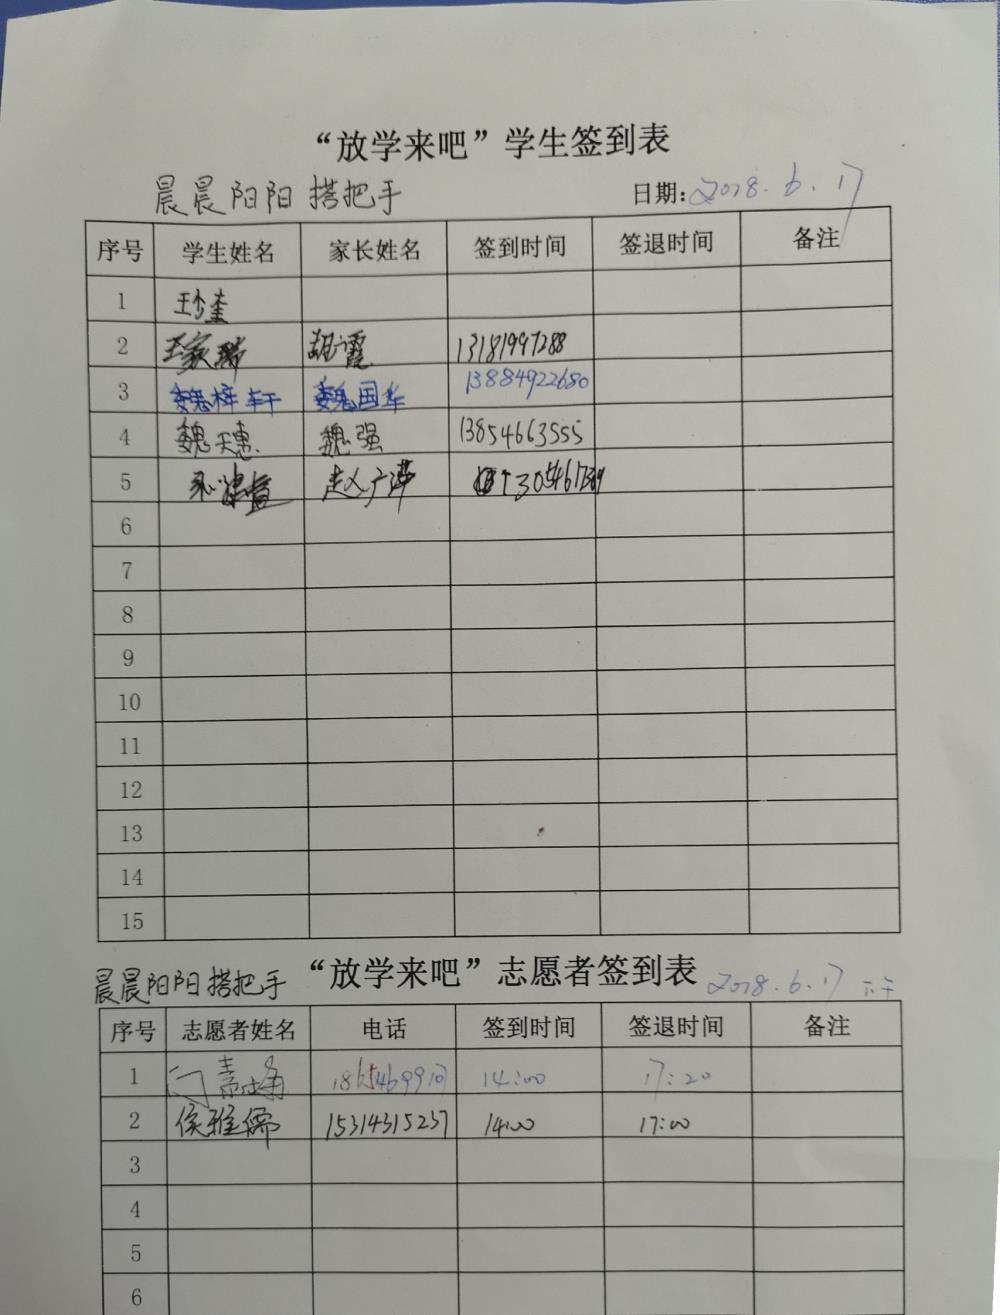 “放学来吧”学生签到表
晨晨阳阳 搭把手 日期: 2018.6.17
序号 学生姓名 家长姓名 签到时间 签退时间 备注
1
2 王家瑞 胡霞 13181997288
3 魏梓轩 魏国华 13884922680
4 魏天惠 魏强 13854663555
5
6
7
8
9
10
11
12
13
14
15
晨晨阳阳搭把手 “放学来吧”志愿者签到表 2018.6.17 下午
序号 志愿者姓名 电话 签到时间 签退时间 备注
1 14:00 17:20
2 侯雅儒 15314315237 14:00 17:00
3
4
5
6